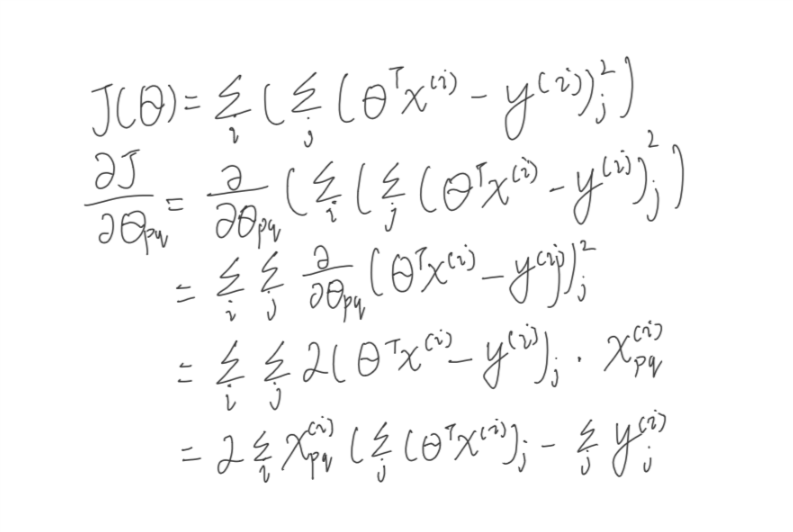 J(θ) = Σ_i ( Σ_j (θ^T x^(i) - y^(i))_j^2 )
∂J/∂θ_pq = ∂/∂θ_pq ( Σ_i ( Σ_j (θ^T x^(i) - y^(i))_j^2 )
= Σ_i Σ_j ∂/∂θ_pq (θ^T x^(i) - y^(i))_j^2
= Σ_i Σ_j 2(θ^T x^(i) - y^(i))_j · x_pq^(i)
= 2 Σ_i x_pq^(i) ( Σ_j (θ^T x^(i))_j - Σ_j y_j^(i)